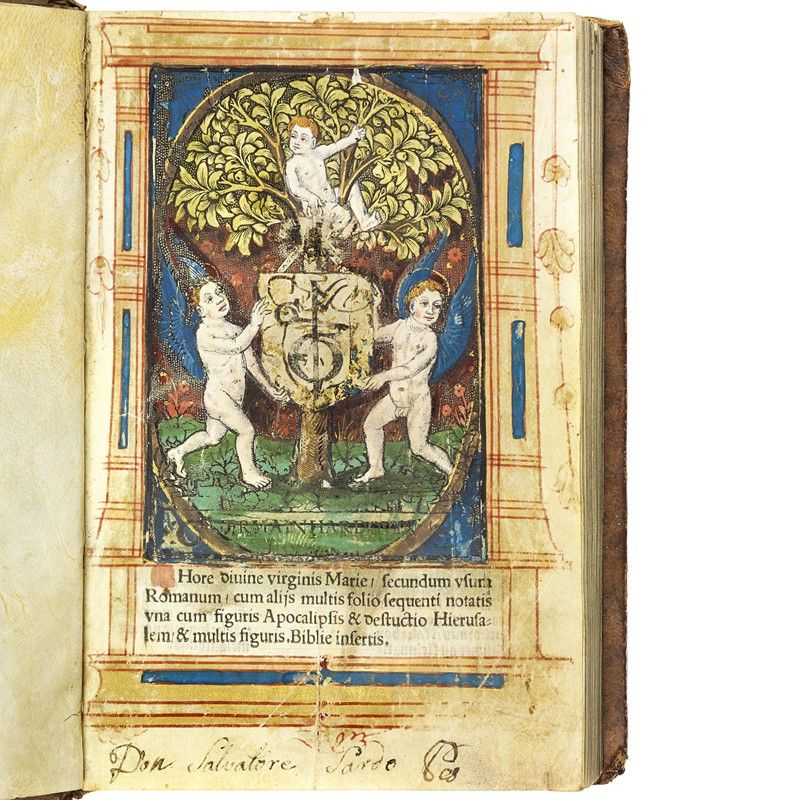 G M
GERMAIN HARDOUYN
Hore diuine virginis Marie/ secundum vsum
Romanum/ cum alijs multis folio sequenti notatis
vna cum figuris Apocalipsis & destuctio Hierusa-
lem/ & multis figuris. Biblie insertis.
Don Salvatore Pardo